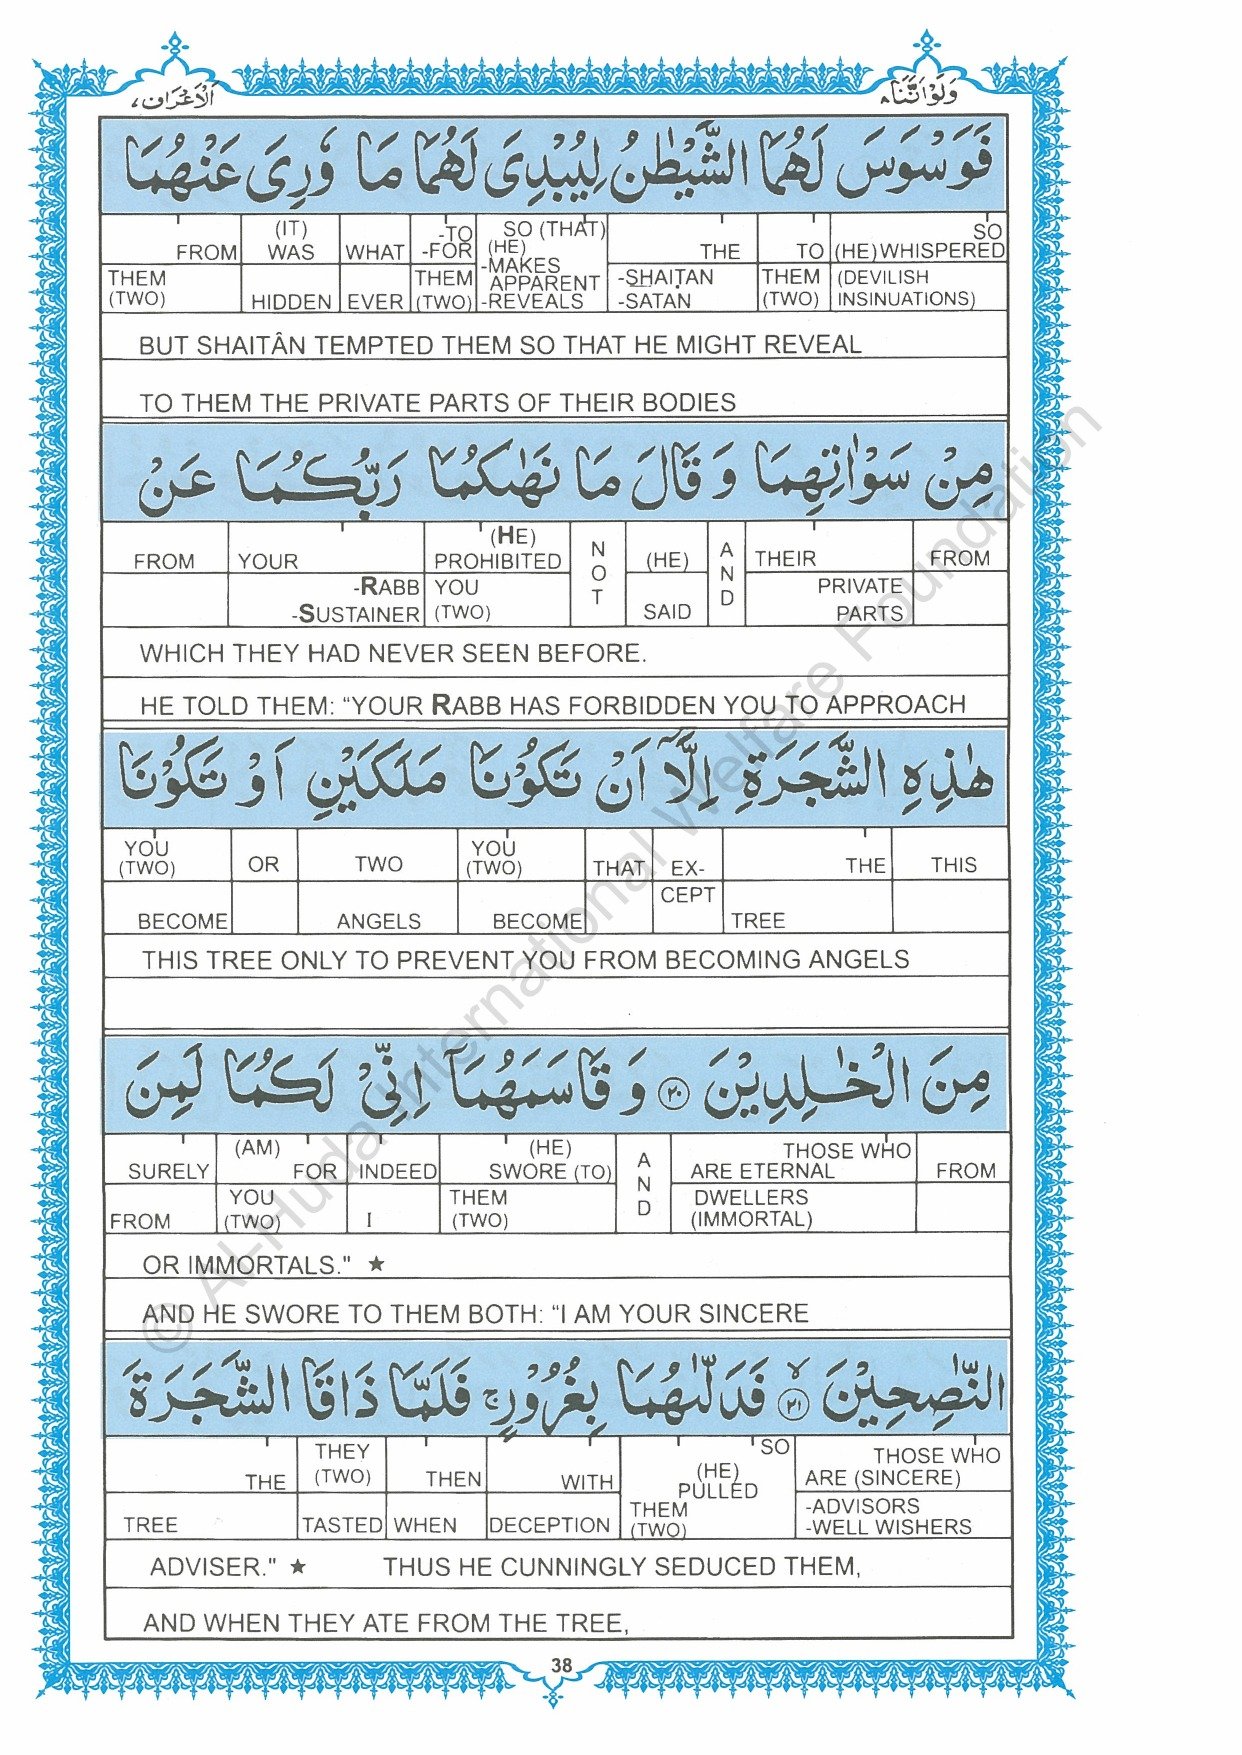 وَلَوْ اَنَّنَا ۸
اَلْاَعْرَاف ۷
فَوَسْوَسَ لَهُمَا الشَّيْطٰنُ لِيُبْدِيَ لَهُمَا مَا وٗرِيَ عَنْهُمَا
FROM (IT) WAS WHAT -TO -FOR SO (THAT) (HE) -MAKES APPARENT -REVEALS THE TO SO (HE) WHISPERED
THEM (TWO) HIDDEN EVER THEM (TWO) -SHAITAN -SATAN THEM (TWO) (DEVILISH INSINUATIONS)
BUT SHAITÂN TEMPTED THEM SO THAT HE MIGHT REVEAL
TO THEM THE PRIVATE PARTS OF THEIR BODIES
مِنْ سَوْاٰتِهِمَا وَ قَالَ مَا نَهٰىكُمَا رَبُّكُمَا عَنْ
FROM YOUR (HE) PROHIBITED NOT (HE) AND THEIR FROM
-RABB -SUSTAINER YOU (TWO) SAID PRIVATE PARTS
WHICH THEY HAD NEVER SEEN BEFORE.
HE TOLD THEM: “YOUR RABB HAS FORBIDDEN YOU TO APPROACH
هٰذِهِ الشَّجَرَةِ اِلَّآ اَنْ تَكُوْنَا مَلَكَيْنِ اَوْ تَكُوْنَا
YOU (TWO) OR TWO YOU (TWO) THAT EX- THE THIS
BECOME ANGELS BECOME CEPT TREE
THIS TREE ONLY TO PREVENT YOU FROM BECOMING ANGELS
مِنَ الْخٰلِدِيْنَ ۲۰ وَ قَاسَمَهُمَآ اِنِّيْ لَكُمَا لَمِنَ
SURELY (AM) FOR INDEED (HE) SWORE (TO) AND THOSE WHO ARE ETERNAL FROM
FROM YOU (TWO) I THEM (TWO) DWELLERS (IMMORTAL)
OR IMMORTALS." ★
AND HE SWORE TO THEM BOTH: “I AM YOUR SINCERE
النّٰصِحِيْنَ ۲۱ۙ فَدَلّٰىهُمَا بِغُرُوْرٍۚ فَلَمَّا ذَاقَا الشَّجَرَةَ
THE THEY (TWO) THEN WITH SO (HE) PULLED THOSE WHO ARE (SINCERE)
TREE TASTED WHEN DECEPTION THEM (TWO) -ADVISORS -WELL WISHERS
ADVISER." ★ THUS HE CUNNINGLY SEDUCED THEM,
AND WHEN THEY ATE FROM THE TREE,
38
© Al-Huda International Welfare Foundation